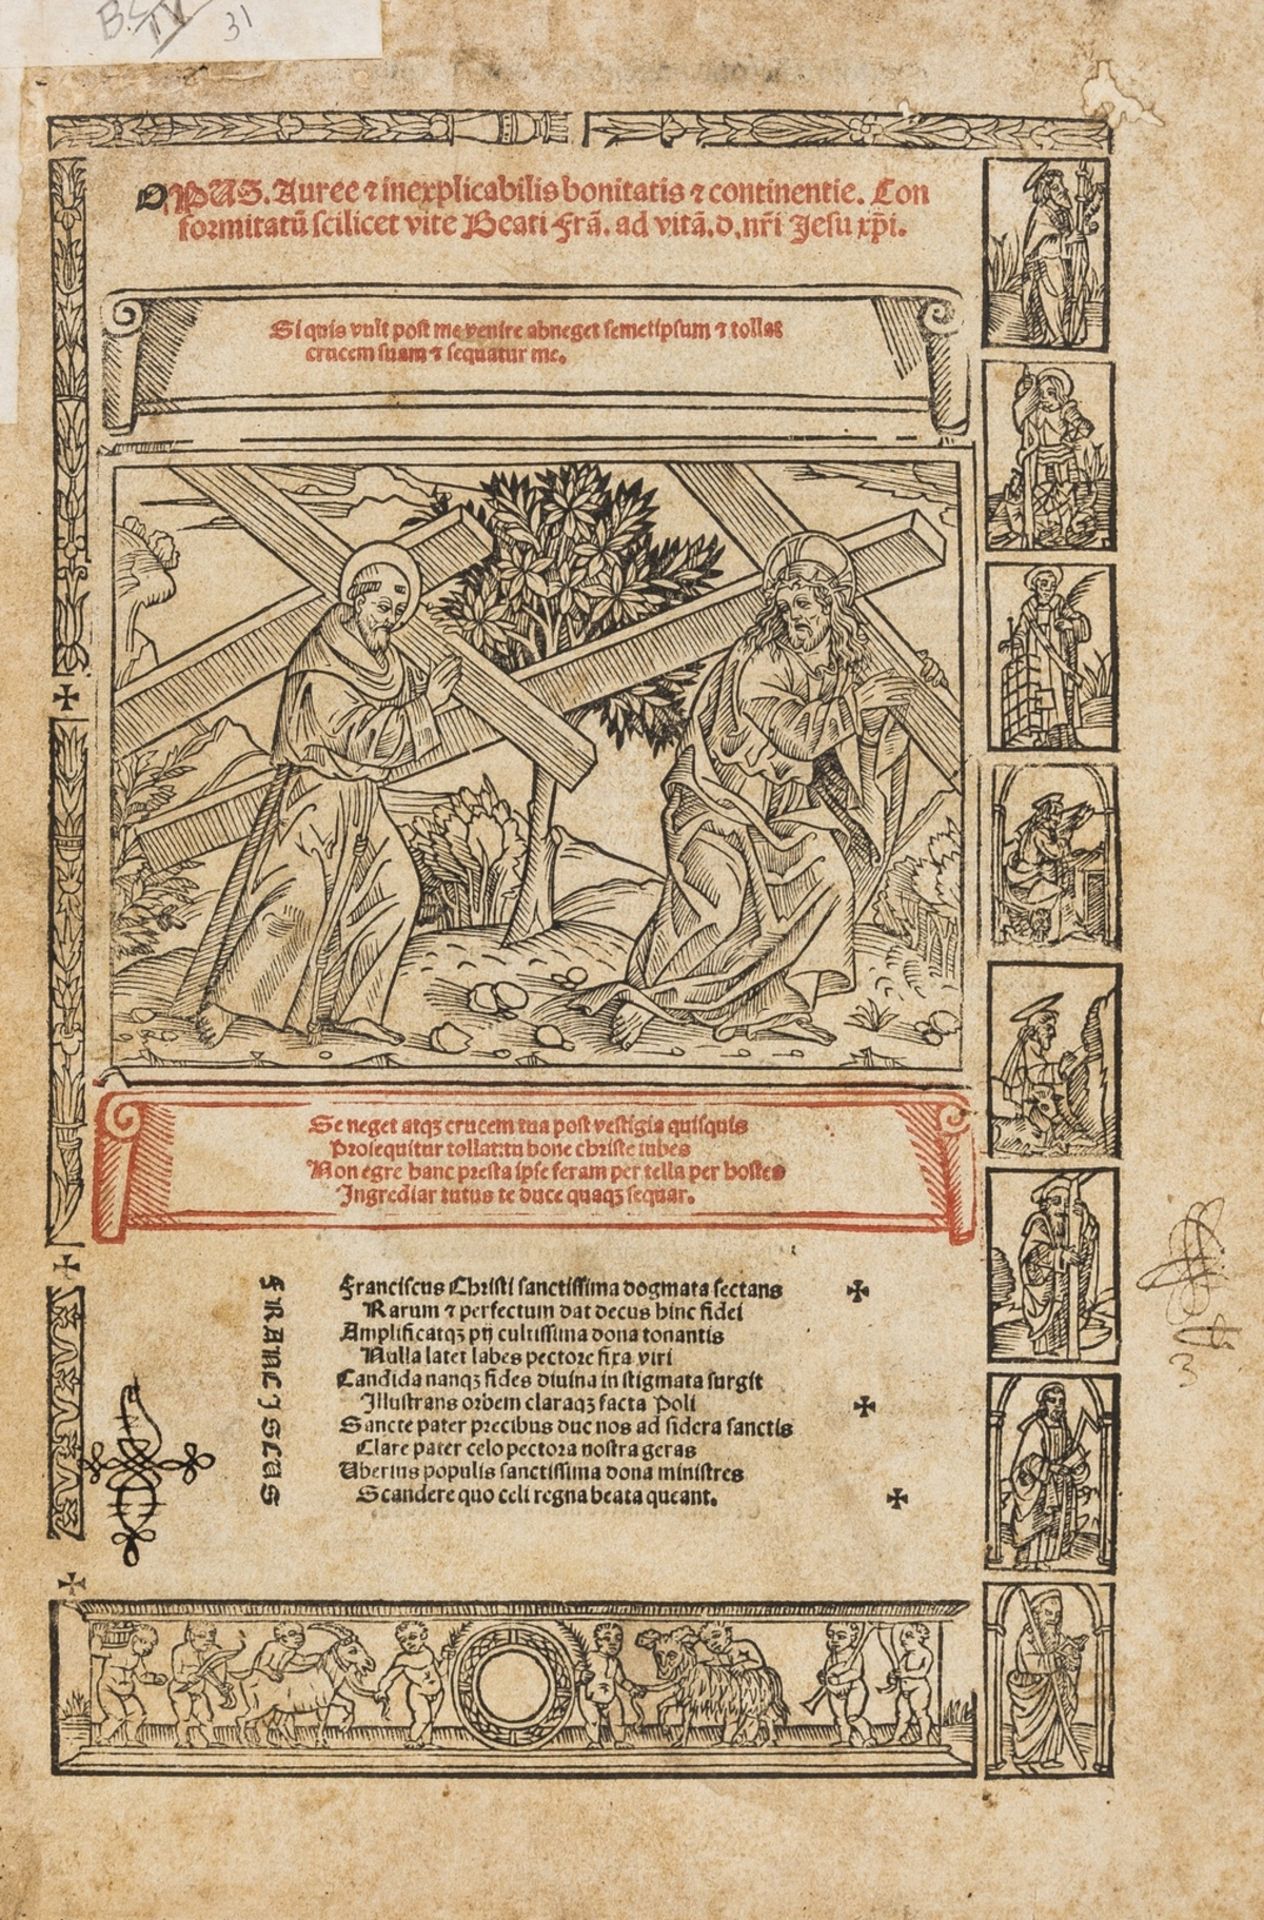 B.S IV 31
OPUS. Auree ⁊ inexplicabilis bonitatis ⁊ continentie. Con
formitatū scilicet vite Beati Frā. ad vitā. d. nr̄i Jesu xp̄i.
Si quis vult post me venire abneget semetipsum ⁊ tollat
crucem suam ⁊ sequatur me.
Se neget atqꝫ crucem tua post vestigia quisquis
Prosequitur tollat: tu bone christe iubes
Non egre hanc presta ipse feram per tella per hostes
Ingrediar tutus te duce quaqꝫ sequar.
FRANCISCUS
Franciscus Christi sanctissima dogmata sectans
Rarum ⁊ perfectum dat decus hinc fidei
Amplificatqꝫ pij cultissima dona tonantis
Nulla latet labes pectore fixa viri
Candida nanqꝫ fides diuina in stigmata surgit
Illustrans orbem claraqꝫ facta Poli
Sancte pater precibus duc nos ad sidera sanctis
Clare pater celo pectora nostra geras
Uberius populis sanctissima dona ministres
Scandere quo celi regna beata queant.
3